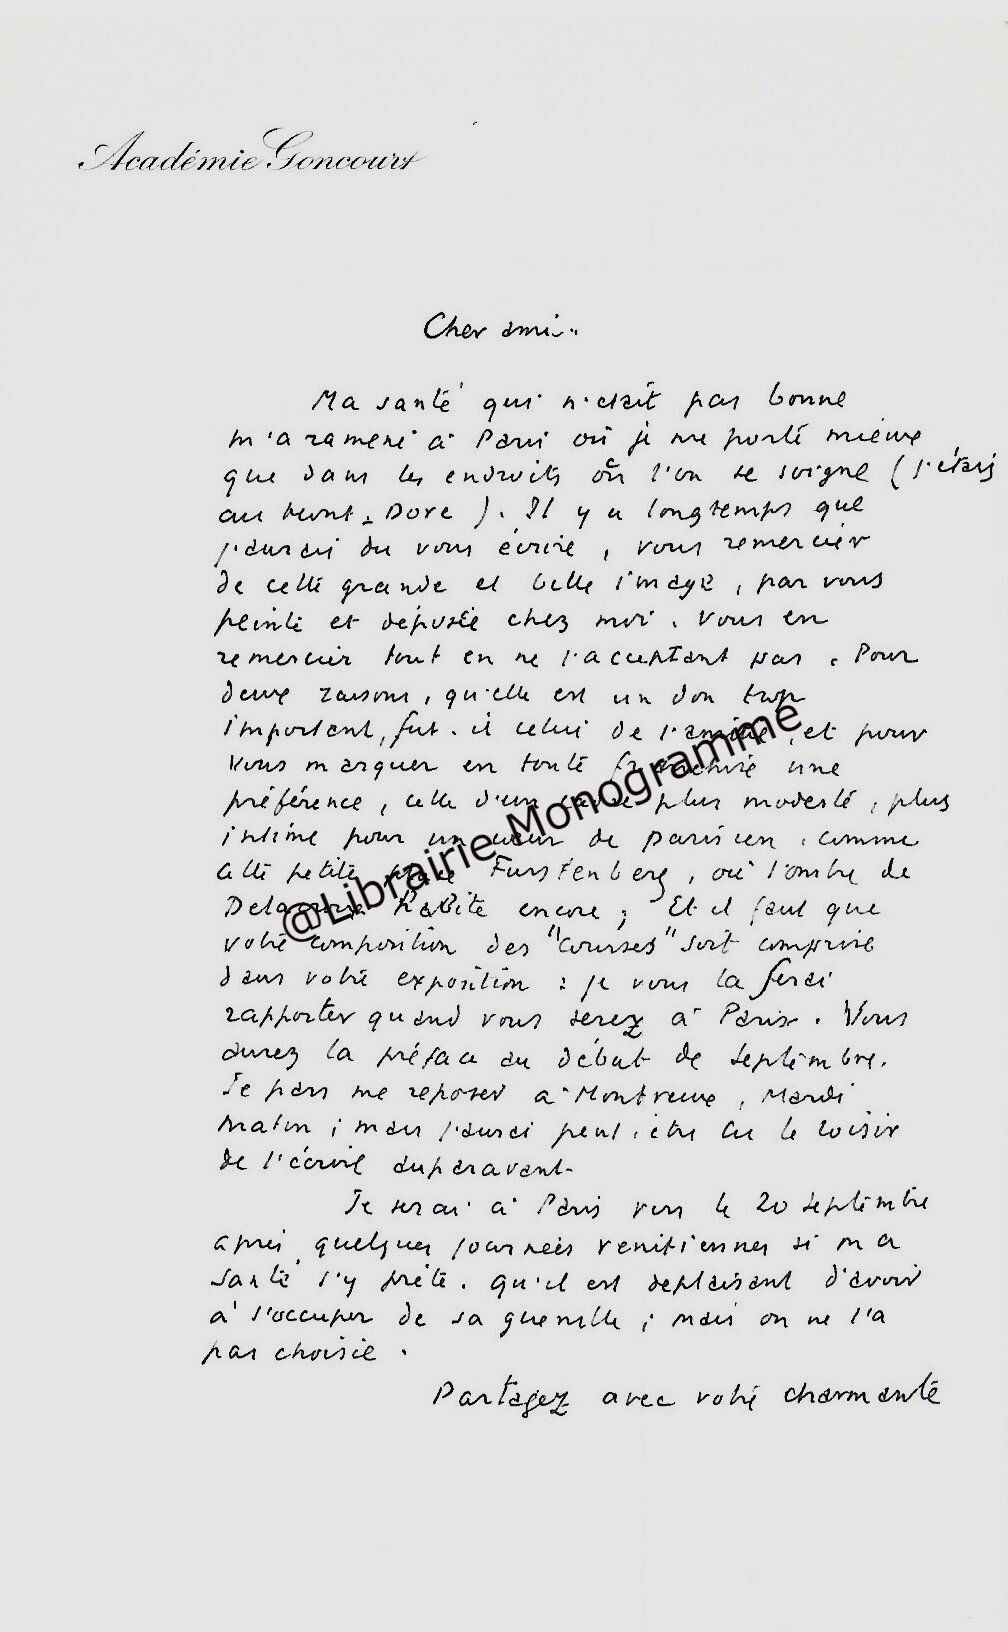 Académie Goncourt
Cher ami..
Ma santé qui n'était pas bonne
m'a ramené à Paris où je me porte mieux
que dans les endroits où l'on se soigne (j'étais
au Mont-Dore). Il y a longtemps que
j'aurais du vous écrire, vous remercier
de cette grande et belle image, par vous
peinte et déposée chez moi. Vous en
remercier tout en ne l'acceptant pas. Pour
deux raisons, qu'elle est un don trop
important, fut-il celui de l'amitié, et pour
vous marquer en toute franchise une
préférence, celle d'un plus modeste, plus
intime pour un cœur de parisien. comme
cette petite place Furstenberg, où l'ombre de
Delacroix habite encore; Et il faut que
votre composition des "courses" soit comprise
dans votre exposition : je vous la ferai
rapporter quand vous serez à Paris. Vous
aurez la préface au début de septembre.
Je pars me reposer à Montreux, Mardi
matin; mais j'aurai peut-être eu le loisir
de l'écrire auparavant-
Je serai à Paris vers le 20 septembre
après quelques journées vénitiennes si ma
santé s'y prête. qu'il est déplaisant d'avoir
à s'occuper de sa guenille; mais on ne l'a
pas choisie.
Partagez avec votre charmante
@Librairie Monogramme